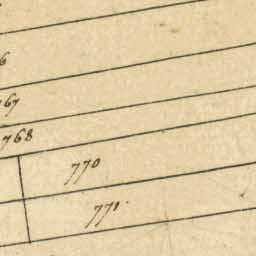 6
767
768
770
771.